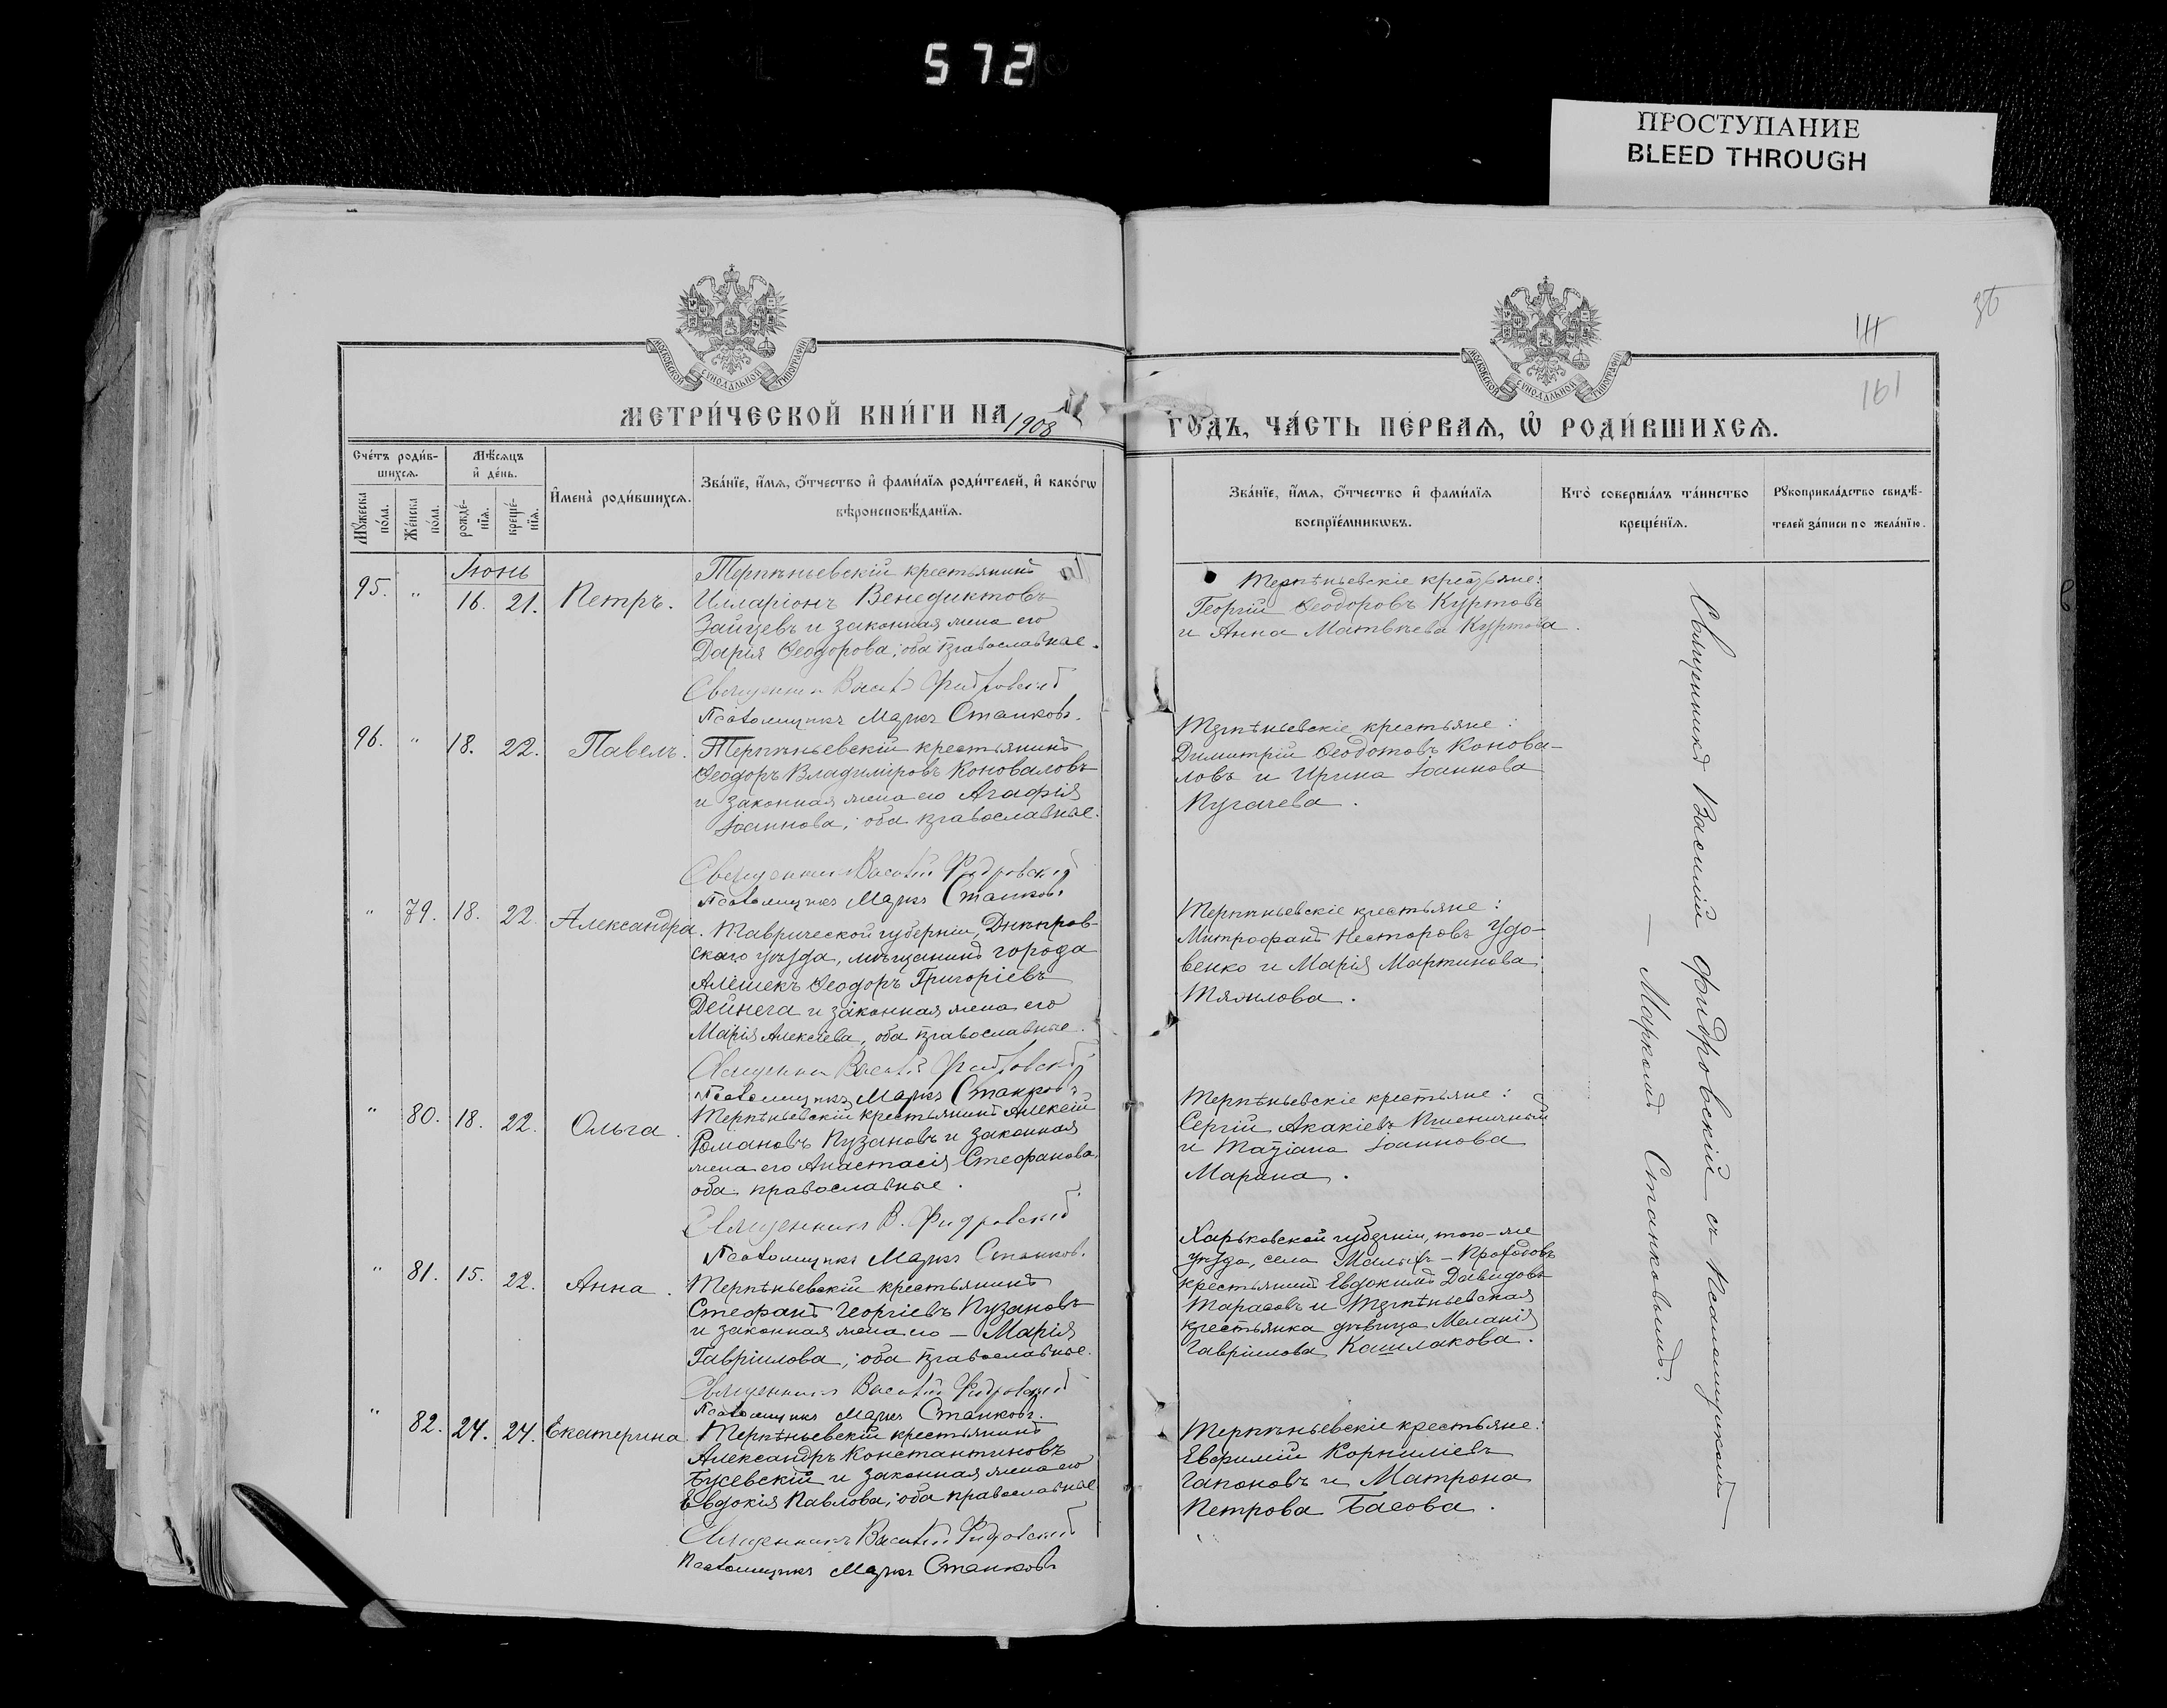 572
ПРОСТУПАНИЕ
BLEED THROUGH
МОСКОВСКОЙ СѴНОДАЛЬНОЙ ТИПОГРАФІИ
МОСКОВСКОЙ СѴНОДАЛЬНОЙ ТИПОГРАФІИ
161
МЕТРИ́ЧЕСКОЙ КНИ́ГИ НА 1908
ГО́ДЪ, ЧА́СТЬ ПЕ́РВАѦ, Ѡ҆ РОДИ́ВШИХСѦ.
Сче́тъ роди́в-
шихсѧ.
Мꙋ́жеска по́ла.
Же́нска по́ла.
Мѣ́сѧцъ
и҆ де́нь.
рожде́-
нїѧ.
креще́-
нїѧ.
И҆мена̀ роди́вшихсѧ.
Зва́нїе, и҆́мѧ, ѻ҆́тчество и҆ фами́лїѧ роди́телей, и҆ како́гѡ
вѣроисповѣ́данїѧ.
Зва́нїе, и҆́мѧ, ѻ҆́тчество и҆ фами́лїѧ
воспрїе́мникѡвъ.
Кто̀ соверша́лъ та́инство
креще́нїѧ.
Рꙋкоприкла́дство свидѣ́-
телей за́писи по жела́нїю.
Іюнь
95. " 16. 21. Петръ.
Терпѣньевскій крестьянинъ
Илларіонъ Венедиктовъ
Зайцевъ и законная жена его
Дарія Ѳеодорова, оба православные.
Священникъ Василій Фидровскій
Псаломщикъ Маркъ Станковъ.
Терпѣньевскіе крестьяне:
Георгій Ѳеодоровъ Куртовъ
и Анна Матвѣева Куртова.
96. " 18. 22. Павелъ.
Терпѣньевскій крестьянинъ
Ѳеодоръ Владиміровъ Коноваловъ
и законная жена его Агафія
Іоаннова, оба православные.
Священникъ Василій Фидровскій
Псаломщикъ Маркъ Станковъ
Терпѣньевскіе крестьяне:
Димитрій Ѳеодотовъ Конова-
ловъ и Ирина Іоаннова
Пугачева.
" 79. 18. 22. Александра.
Таврической губерніи, Днѣпров-
скаго уѣзда, мѣщанинъ города
Алешекъ Ѳеодоръ Григоріевъ
Дейнега и законная жена его
Марія Алексѣева, оба православные.
Священникъ Василій Фидровскій
Псаломщикъ Маркъ Станковъ
Терпѣньевскіе крестьяне:
Митрофанъ Несторовъ Удо-
венко и Марія Мартинова
Тяжлова.
" 80. 18. 22. Ольга.
Терпѣньевскій крестьянинъ Алексій
Романовъ Пузановъ и законная
жена его Анастасія Стефанова,
оба православные.
Священникъ В. Фидровскій
Псаломщикъ Маркъ Станковъ.
Терпѣньевскіе крестьяне:
Сергій Акакіевъ Пшеничный
и Татіана Іоаннова
Марина.
" 81. 15. 22. Анна.
Терпѣньевскій крестьянинъ
Стефанъ Георгіевъ Пузановъ
и законная жена его — Марія
Гавріилова, оба православные.
Священникъ Василій Фидровскій
Псаломщикъ Маркъ Станковъ.
Харьковской губерніи, того-же
уѣзда, села Малыхъ-Проходовъ
крестьянинъ Евдокимъ Давидовъ
Тарасовъ и Терпѣньевская
крестьянка дѣвица Меланія
Гавріилова Кашлакова.
" 82. 24. 24. Екатерина
Терпѣньевскій крестьянинъ
Александръ Константиновъ
Бусевскій и законная жена его
Евдокія Павлова, оба православные
Священникъ Василій Фидровскій
Псаломщикъ Маркъ Станковъ
Терпѣньевскіе крестьяне:
Евфимій Корниліевъ
Гапоновъ и Матрона
Петрова Басова.
Священникъ Василій Фидровскій съ псаломщикомъ
— Маркомъ Станковымъ.